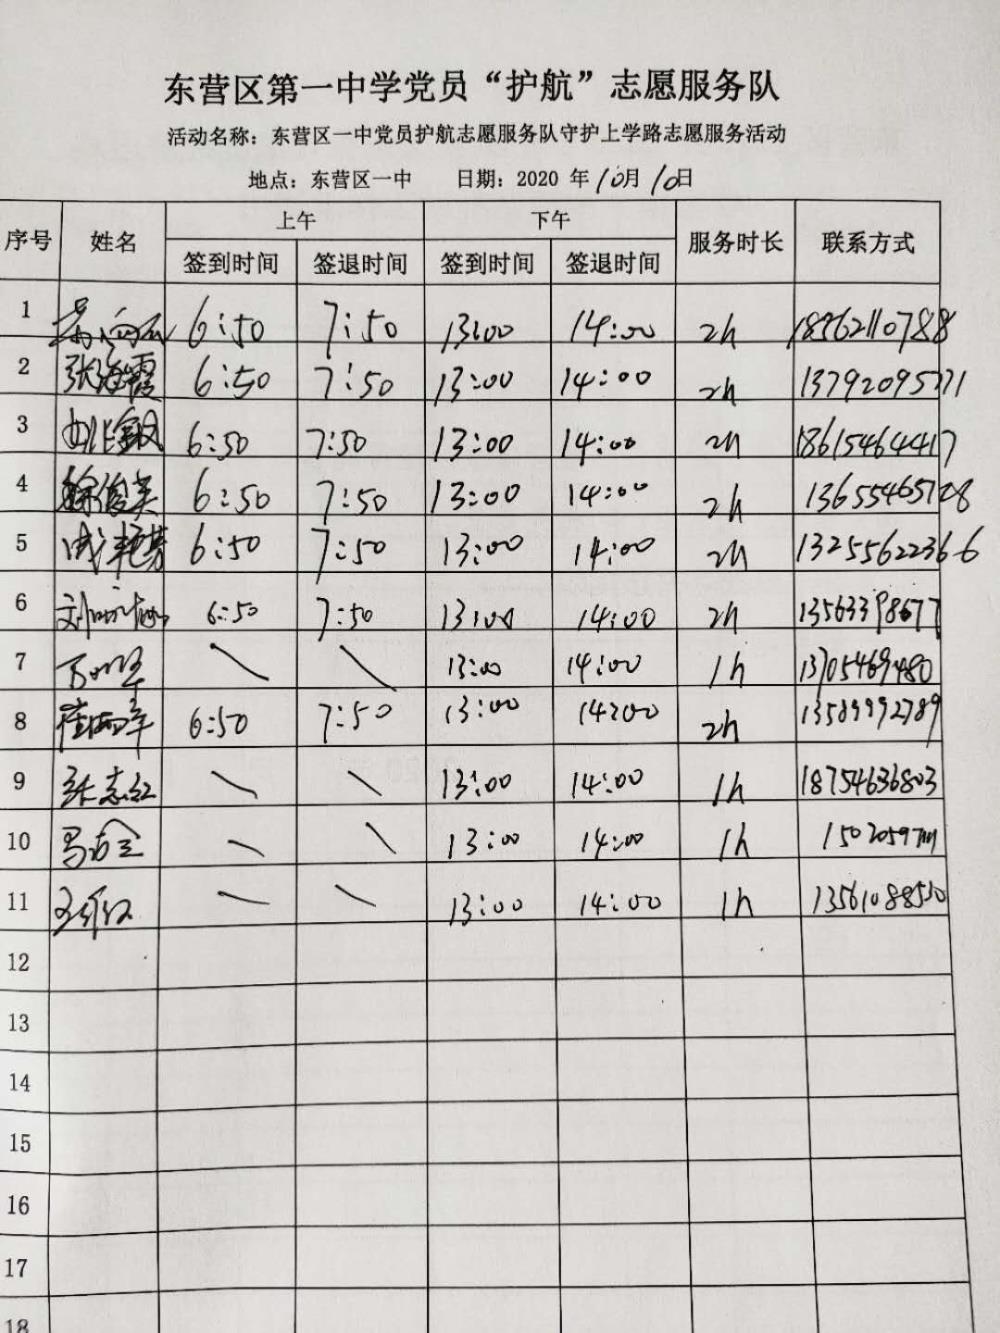 东营区第一中学党员“护航”志愿服务队
活动名称：东营区一中党员护航志愿服务队守护上学路志愿服务活动
地点：东营区一中 日期：2020 年 10月 10日
序号 姓名 上午 下午 服务时长 联系方式
签到时间 签退时间 签到时间 签退时间
1 6:50 7:50 13:00 14:00 2h 18562110788
2 张海霞 6:50 7:50 13:00 14:00 2h
3 6:50 7:50 13:00 14:00 2h 18615464417
4 徐俊英 6:50 7:50 13:00 14:00 2h
5 成艳芳 6:50 7:50 13:00 14:00 2h 13255622366
6 6:50 7:50 13:00 14:00 2h 13563398677
7 \ \ 13:00 14:00 1h 13705469480
8 6:50 7:50 13:00 14:00 2h 13589992789
9 张志红 \ \ 13:00 14:00 1h 18754636803
10 \ \ 13:00 14:00 1h
11 \ \ 13:00 14:00 1h
12
13
14
15
16
17
18